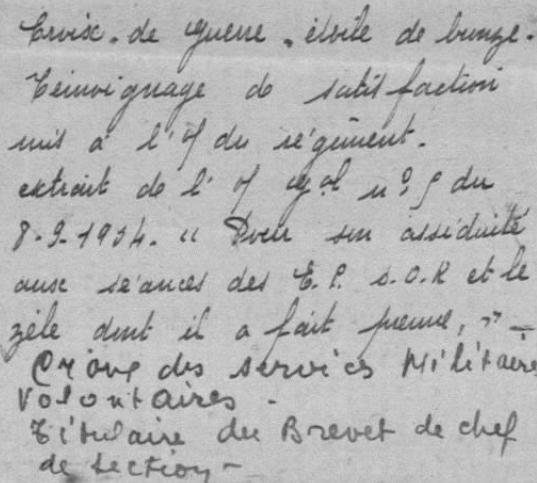 Croix de guerre. étoile de bronze.
Témoignage de satisfaction
mis à l'O/ du régiment.
extrait de l'O/ Gal n° 9 du
8-9-1934. " Pour son assiduité
aux séances des E.P. s.O.R et le
zèle dont il a fait preuve, " -
Croix des services Militaires
Volontaires -
Titulaire du Brevet de chef
de section -